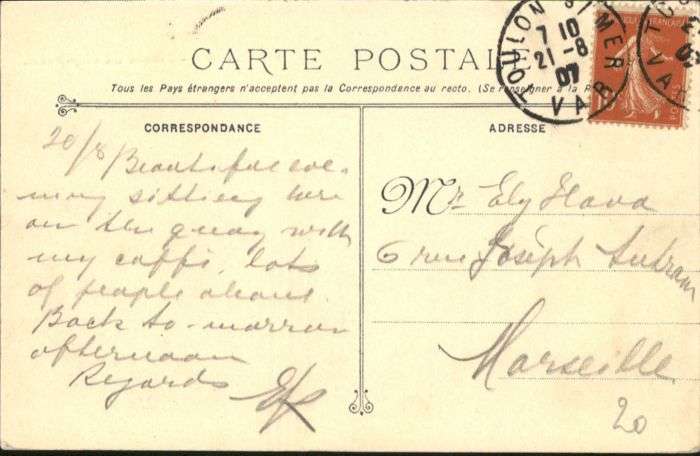 CARTE POSTALE
Tous les Pays étrangers n'acceptent pas la Correspondance au recto. (Se renseigner à la
CORRESPONDANCE
20/8 Beautiful eve-
ning sitting here
on the quay with
my caffé, lots
of people about.
Back to-morrow
afternoon
Regards
ADRESSE
Mr Ely
6 rue Joseph Autran
Marseille
20
TOULON S/MER
7 10
21-8
07
VAR
VAR